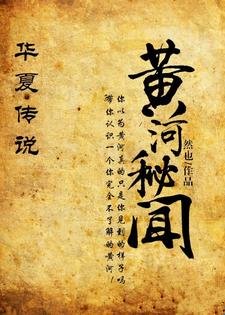 黄河秘闻
然也/作品
你以为黄河真的只是你见到的样子吗
带你认识一个你完全不了解的黄河！
华夏传说